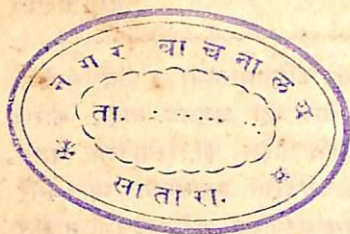 नगर वाचनालय
ता. ..........
सातारा.